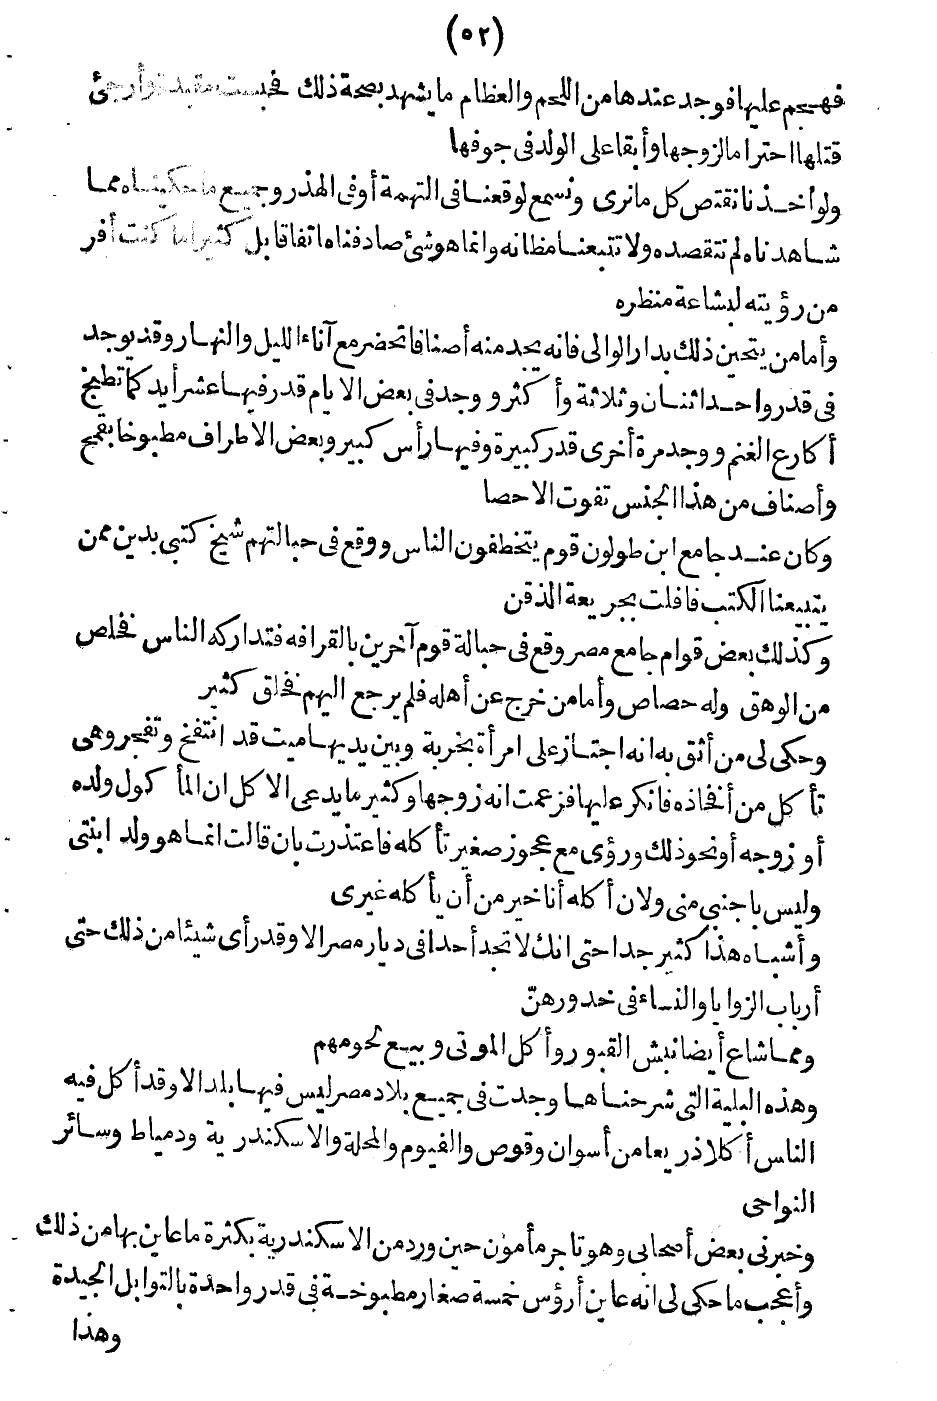 (٥٢)
فهجم عليها فوجد عندها من اللحم والعظام ما يشهد بصحة ذلك فحبست مقيدة وأرجئ
قتلها احتراما لزوجها وأبقا على الولد فى جوفها
ولو أخذنا نقتص كل ما نرى ونسمع لوقعنا فى التهمة أو فى الهذر وجميع ما حكيناه مما
شاهدناه لم نتقصده ولا تتبعنا مظانه وانما هو شئ صادفناه اتفاقا بل كثيرا ما كنت أفر
من رؤيته لبشاعة منظره
وأما من يتحين ذلك بدار الوالى فانه يجد منه أصنافا تحضر مع آناء الليل والنهار وقد يوجد
فى قدر واحد اثنان وثلاثة وأكثر ووجد فى بعض الايام قدر فيها عشر أيد كما تطبخ
أكارع الغنم ووجد مرة أخرى قدر كبيرة وفيها رأس كبير وبعض الاطراف مطبوخا بقمح
وأصناف من هذا الجنس تفوت الاحصا
وكان عند جامع ابن طولون قوم يتخطفون الناس ووقع فى حبالتهم شيخ كتبى بدين ممن
يتبيعنا الكتب فافلت بجريعة الذقن
وكذلك بعض قوام جامع مصر وقع فى حبالة قوم آخرين بالقرافه فتداركه الناس فخلص
من الوهق وله حصاص وأما من خرج عن أهله فلم يرجع اليهم فخلق كثير
وحكى لى من أثق به انه اجتاز على امرأة بخربة وبين يديها ميت قد انتفخ وتفجر وهى
تأكل من أفخاذه فانكر عليها فزعمت انه زوجها وكثير ما يدعى الاكل ان المأكول ولده
أو زوجه أو نحو ذلك ورؤى مع عجوز صغير تأكله فاعتذرت بان قالت انما هو ولد ابنتى
وليس باجنبى منى ولان أكله أنا خير من أن يأكله غيرى
وأشباه هذا كثير جدا حتى انك لا تجد أحدا فى ديار مصر الا وقد رأى شيئا من ذلك حتى
أرباب الزوايا والنساء فى خدورهنّ
ومما شاع أيضا نبش القبور وأكل الموتى وبيع لحومهم
وهذه البلية التى شرحناها وجدت فى جميع بلاد مصر ليس فيها بلد الا وقد أكل فيه
الناس أكلا ذريعا من أسوان وقوص والفيوم والمحلة والاسكندرية ودمياط وسائر
النواحى
وخبرنى بعض أصحابى وهو تاجر مأمون حين ورد من الاسكندرية بكثرة ما عاين بها من ذلك
وأعجب ما حكى لى انه عاين أرؤس خمسة صغار مطبوخة فى قدر واحدة بالتوابل الجيدة
وهذا